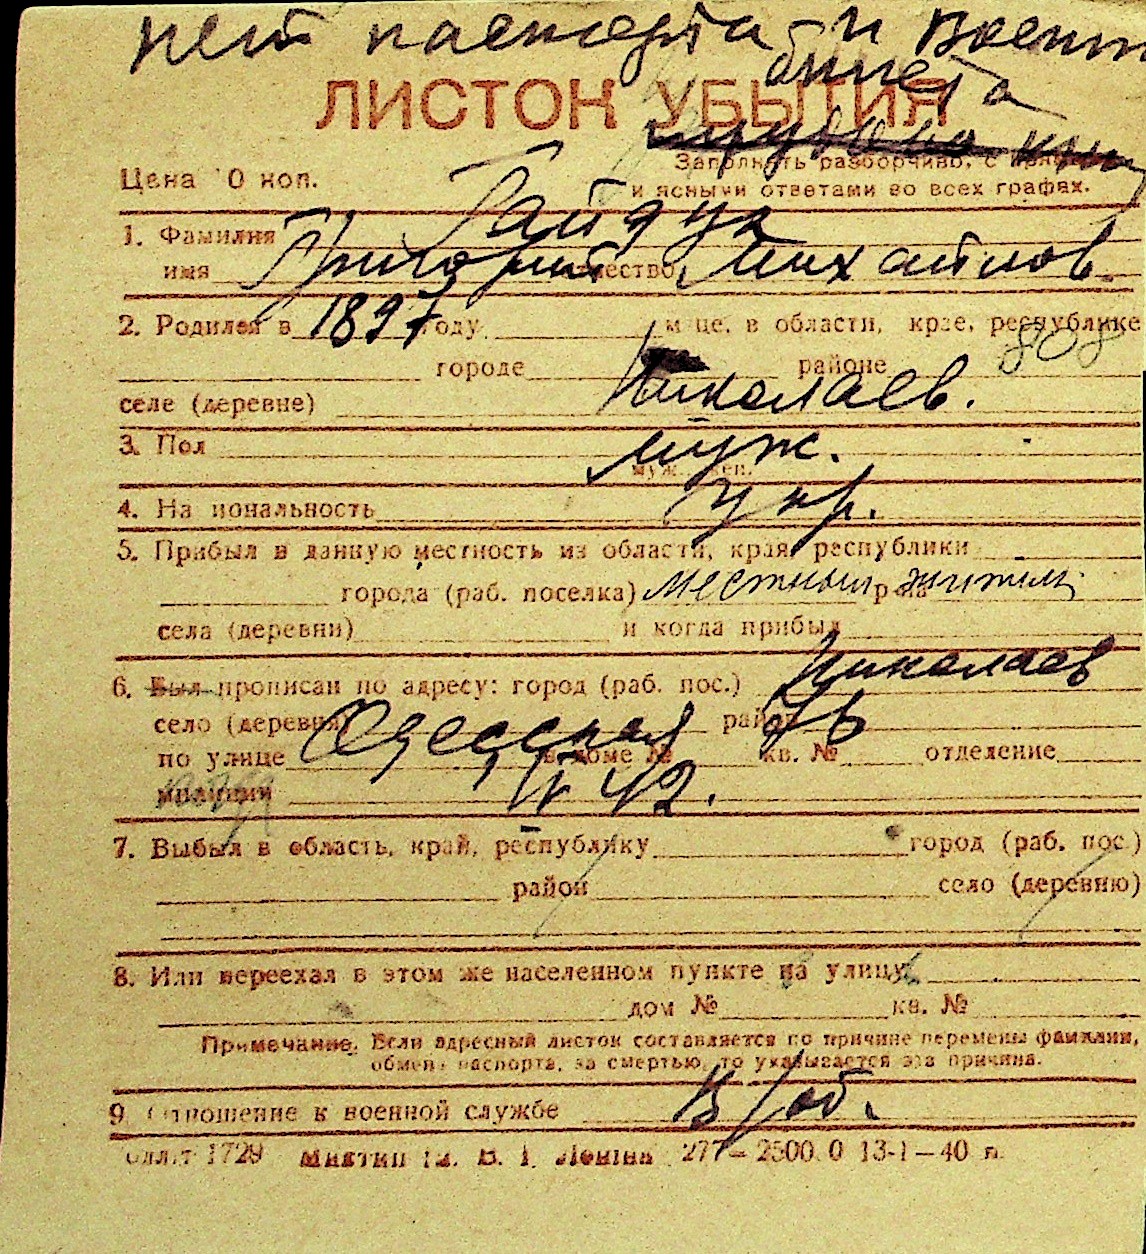 нет паспорта и военн
билета
ЛИСТОК УБЫТИЯ
Заполнять разборчиво, с
Цена 10 коп.
и ясными ответами во всех графах.
1. Фамилия
имя Григорий отчество Михайлов.
2. Родился в 1897 году м-це, в области, крае, республике
808
городе Николаев. районе
селе (деревне)
3. Пол муж.
муж. жен.
4. Национальность укр.
5. Прибыл в данную местность из области, края, республики
города (раб. поселка) местный житель р-на
села (деревни) и когда прибыл
6. Был прописан по адресу: город (раб. пос.) Николаев
село (деревня) район
по улице Одесская 7б в доме № кв. № отделение
милиции № 42.
7. Выбыл в область, край, республику город (раб. пос.)
район село (деревню)
8. Или переехал в этом же населенном пункте на улицу
дом № кв. №
Примечание. Если адресный листок составляется по причине перемены фамилии,
обмена паспорта, за смертью, то указывается эта причина.
9. Отношение к военной службе В/об.
1729 277–2500.0 13-1–40 п.